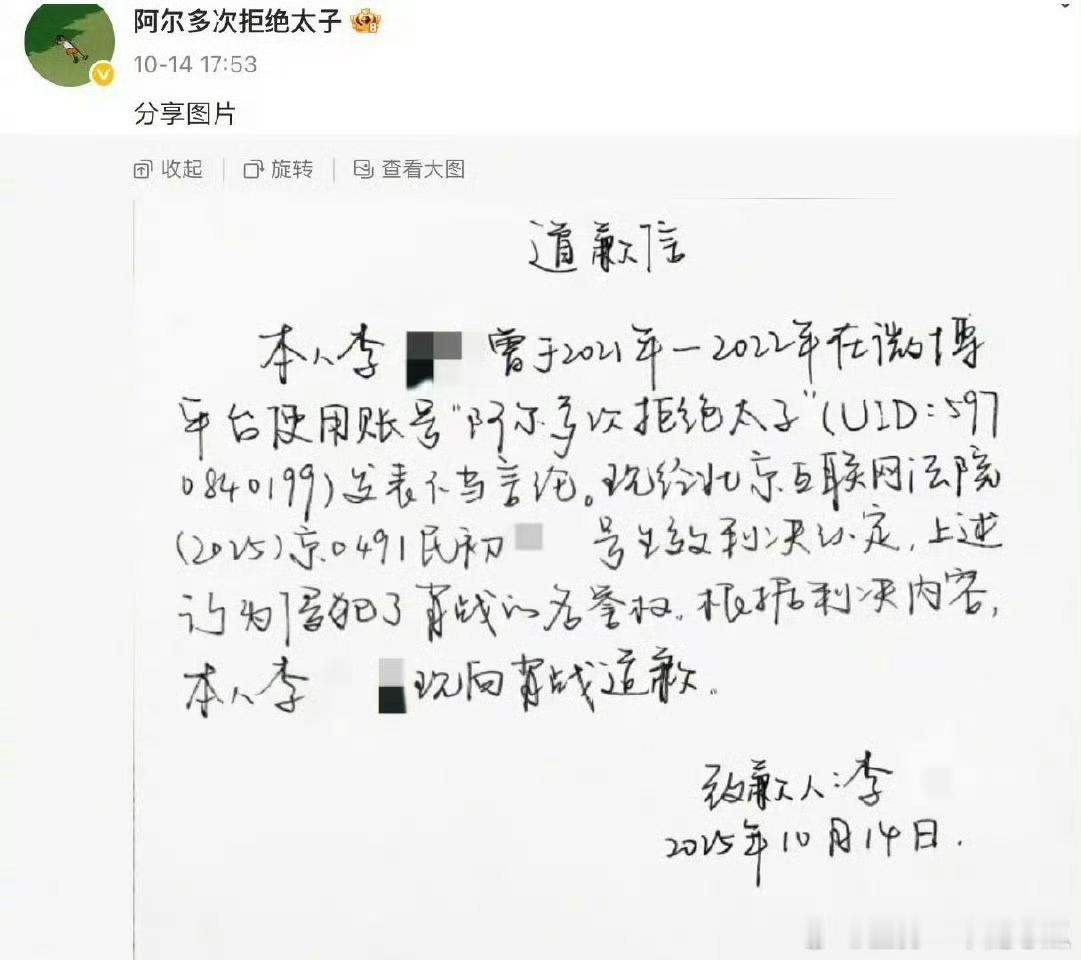 阿尔多次拒绝太子
10-14 17:53
分享图片
收起 旋转 查看大图
道歉信
本人李 曾于2021年-2022年在微博
平台使用账号“阿尔多次拒绝太子”(UID:597
0840199)发表不当言论。现经北京互联网法院
(2025)京0491民初 号生效判决认定,上述
行为侵犯了肖战的名誉权。根据判决内容,
本人李 现向肖战道歉。
致歉人:李
2025年10月14日.